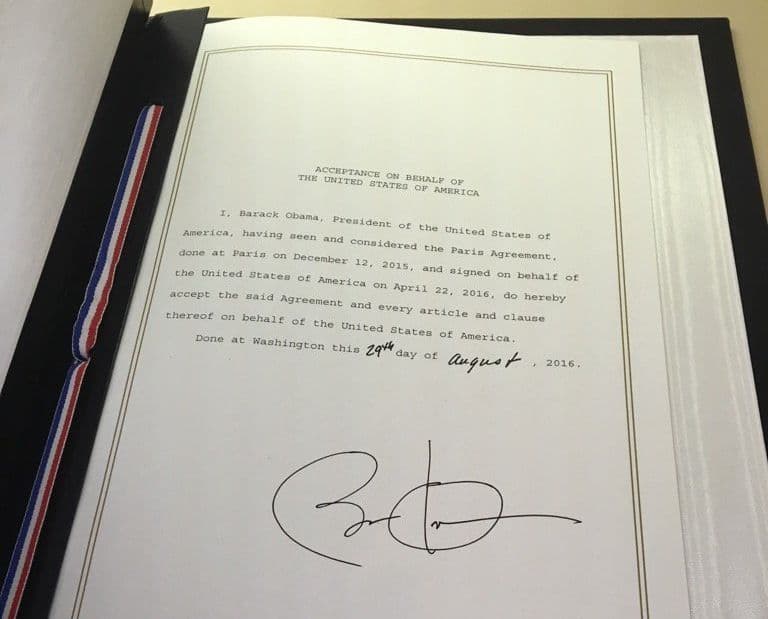 ACCEPTANCE ON BEHALF OF
THE UNITED STATES OF AMERICA
I, Barack Obama, President of the United States of
America, having seen and considered the Paris Agreement,
done at Paris on December 12, 2015, and signed on behalf of
the United States of America on April 22, 2016, do hereby
accept the said Agreement and every article and clause
thereof on behalf of the United States of America.
Done at Washington this 29th day of August, 2016.